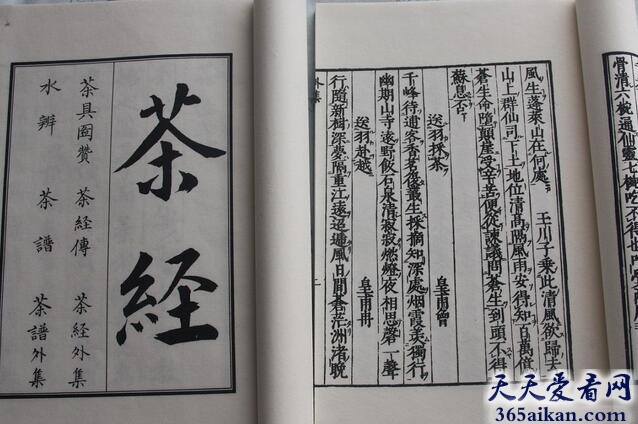 茶経
茶具圖賛 茶経傳 茶経外集
水辨 茶譜 茶譜外集
骨清六椀通仙靈七椀吃不得也
風生蓬萊山在何處 王川子乘此清風欲歸去
山上群仙司下土地位清髙隔風雨安得知百萬億
蒼生命墮顛崖受辛苦便從諫議問蒼生到頭不得
蘇息否
送羽採茶 皇甫曾
千峰待逋客香茗復叢生採摘知深處烟霞羡獨行
幽期山寺遠野飯石泉清寂寂燃燈夜相思磬一聲
送羽赴越 皇甫冉
行隨新樹深夢隔重江遠迢遞風日間蒼茫洲渚晚
外集
天天爱看网
365aikan.com